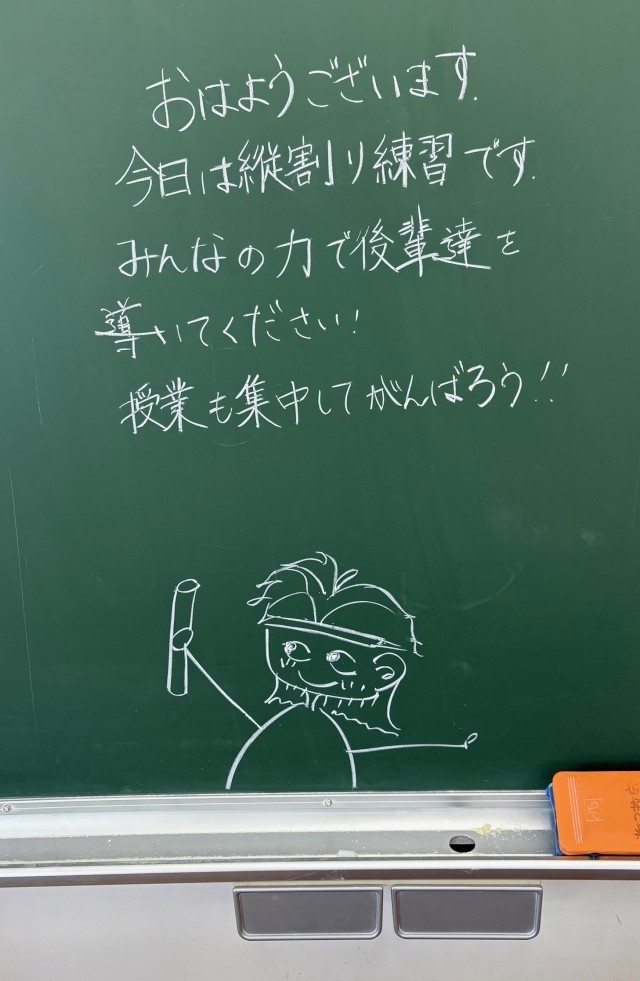 おはようございます.
今日は縦割り練習です.
みんなの力で後輩達を
導いてください!
授業も集中してがんばろう!!